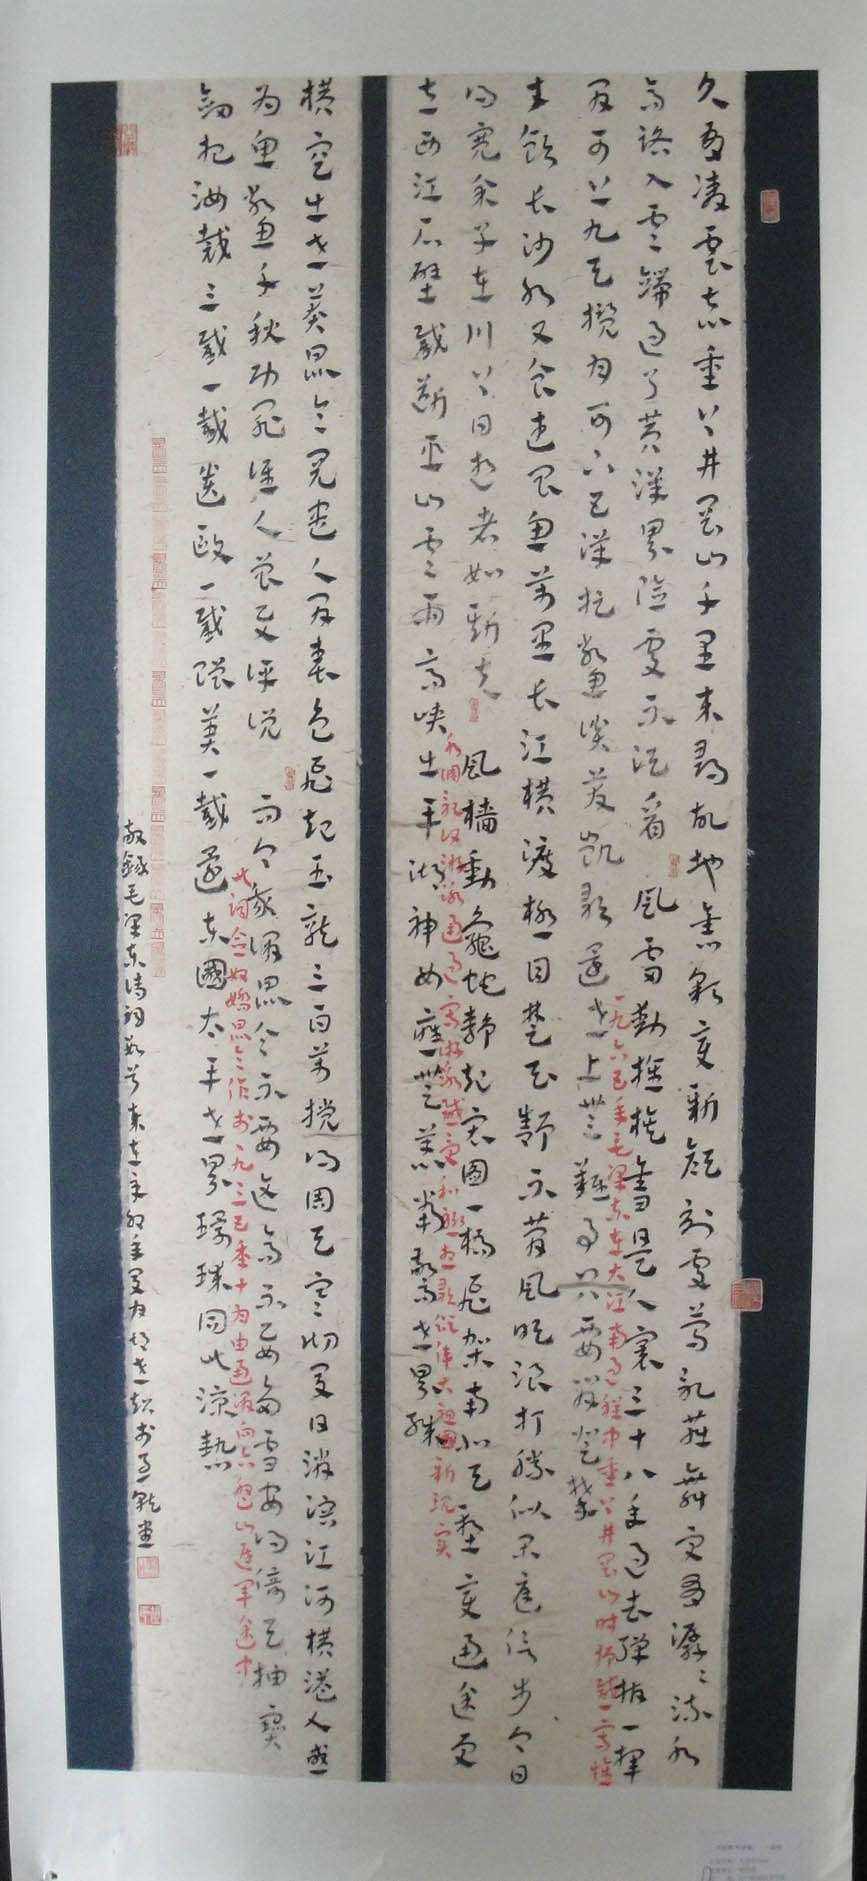 久有凌雲志重上井岡山千里來尋故地舊貌變新顏到處鶯歌燕舞更有潺潺流水
高路入雲端過了黃洋界險處不須看 風雷動旌旗奮是人寰三十八年過去彈指一揮
間可上九天攬月可下五洋捉鱉談笑凱歌還世上無難事只要肯登攀
一九六五年毛澤東在大江南過程中重上井岡山時
才飲長沙水又食武昌魚萬里長江橫渡極目楚天舒不管風吹浪打勝似閑庭信步今日
得寬餘子在川上曰逝者如斯夫 風檣動龜蛇靜起宏圖一橋飛架南北天塹變通途更
立西江石壁截斷巫山雲雨高峽出平湖神女應無恙當驚世界殊
偉大祖國新現實
橫空出世莽崑崙閱盡人間春色飛起玉龍三百萬攪得周天寒徹夏日消溶江河橫溢人或
為魚鱉千秋功罪誰人曾與評說 而今我謂崑崙不要這高不要這多雪安得倚天抽寶
此詞念奴嬌崑崙作於一九三五年十月由 向六盤山進軍途中
劍把汝裁三截一截遺歐一截贈美一截還東國太平世界環球同此涼熱
敬錄毛澤東詩詞數首